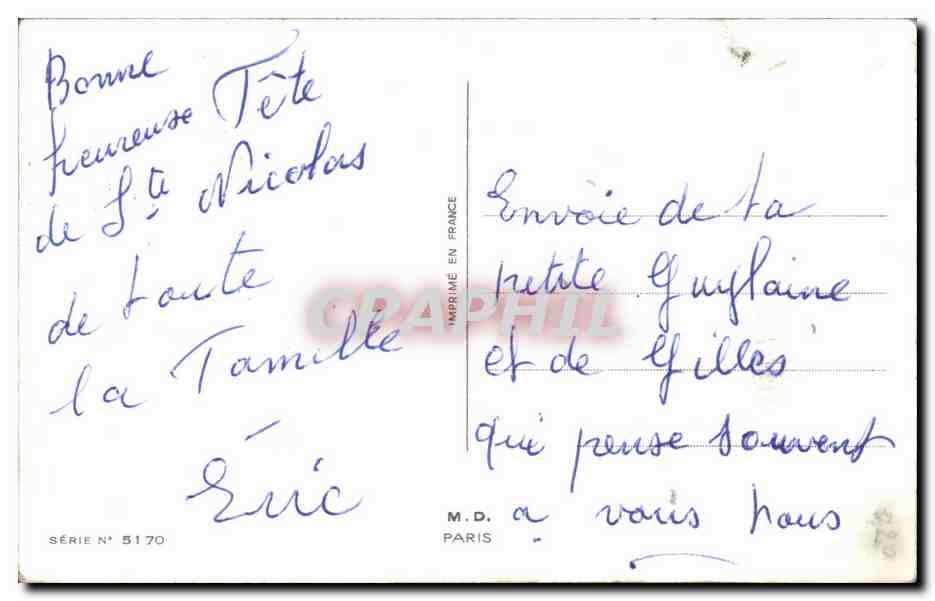 Bonne
heureuse Fête
de Ste Nicolas
de toute
la Famille
Eric
SÉRIE N° 5170
IMPRIMÉ EN FRANCE
CPAPHIL
M.D.
PARIS
Envoie de ta
petite Guylaine
et de Gilles
qui pense souvent
a vous tous